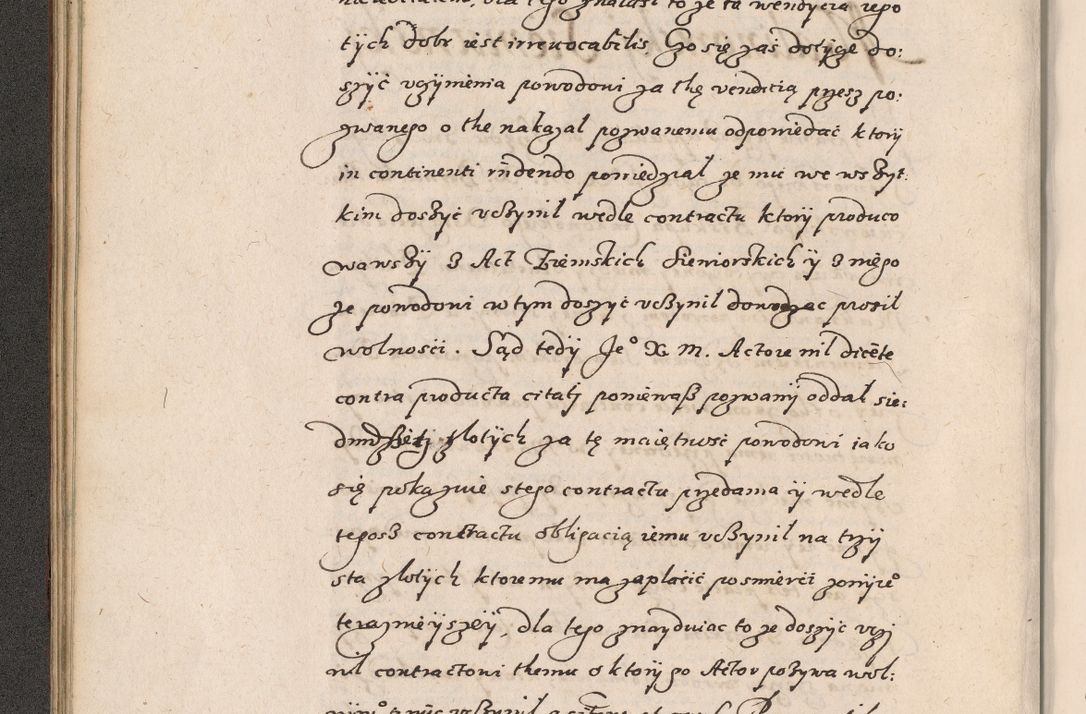 dla tego znalasł to że ta wendycia tego
tych dobr iest irreuocabilis. Co się zas dotyże do:
szyć vczymienia powodowi za thę venditią przesz po:
zwanego o the nakazal pozwanemu odpowiedać ktory
in continenti rñdendo powiedział że mu we wszyt:
kim doszyć vczynil wedle contractu ktory produco
wawszy z Act Ziemskich Sieniorskich y z niego
Że powodowi w tym doszyć vczynil dowodząc prosil
wolnosci. Sąd tedy Jeº X. M. Actore nil dicēte
contra producta citati poniewasz pozwany oddal sie:
dmdzsieti zlotych za tę maiętnosć powodowi iako
się pokazuie s tego contractu przedania y wedle
tegosz contractu obligacią iemu vczynil na trzy
sta zlotych ktore mu ma zaplacić po smierci zonyreº
teraznieyszey, dla tego znayduiac to że doszyć vczy
nil contractowi themu o ktory go Actor pozywa wol: